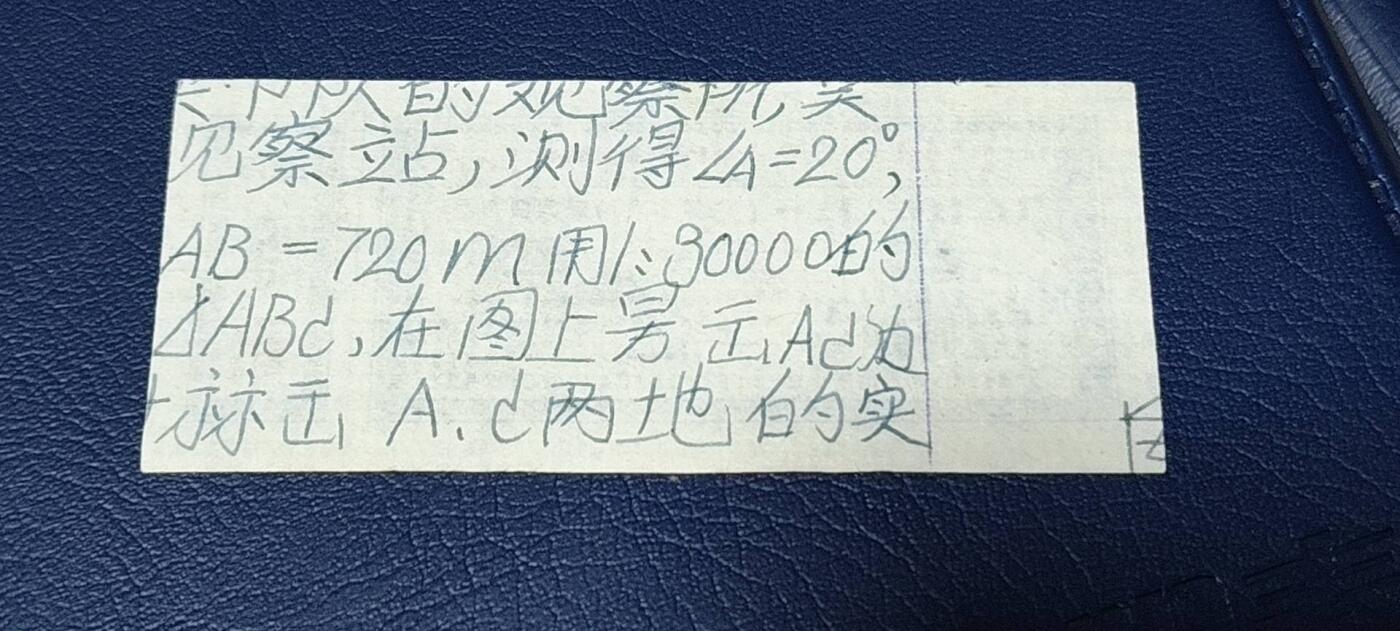 队的观察所,
见察站,测得∠A=20°,
AB=720m用1:30000的
ABd,在图上另 示Ad为
标示 A.d两地的实